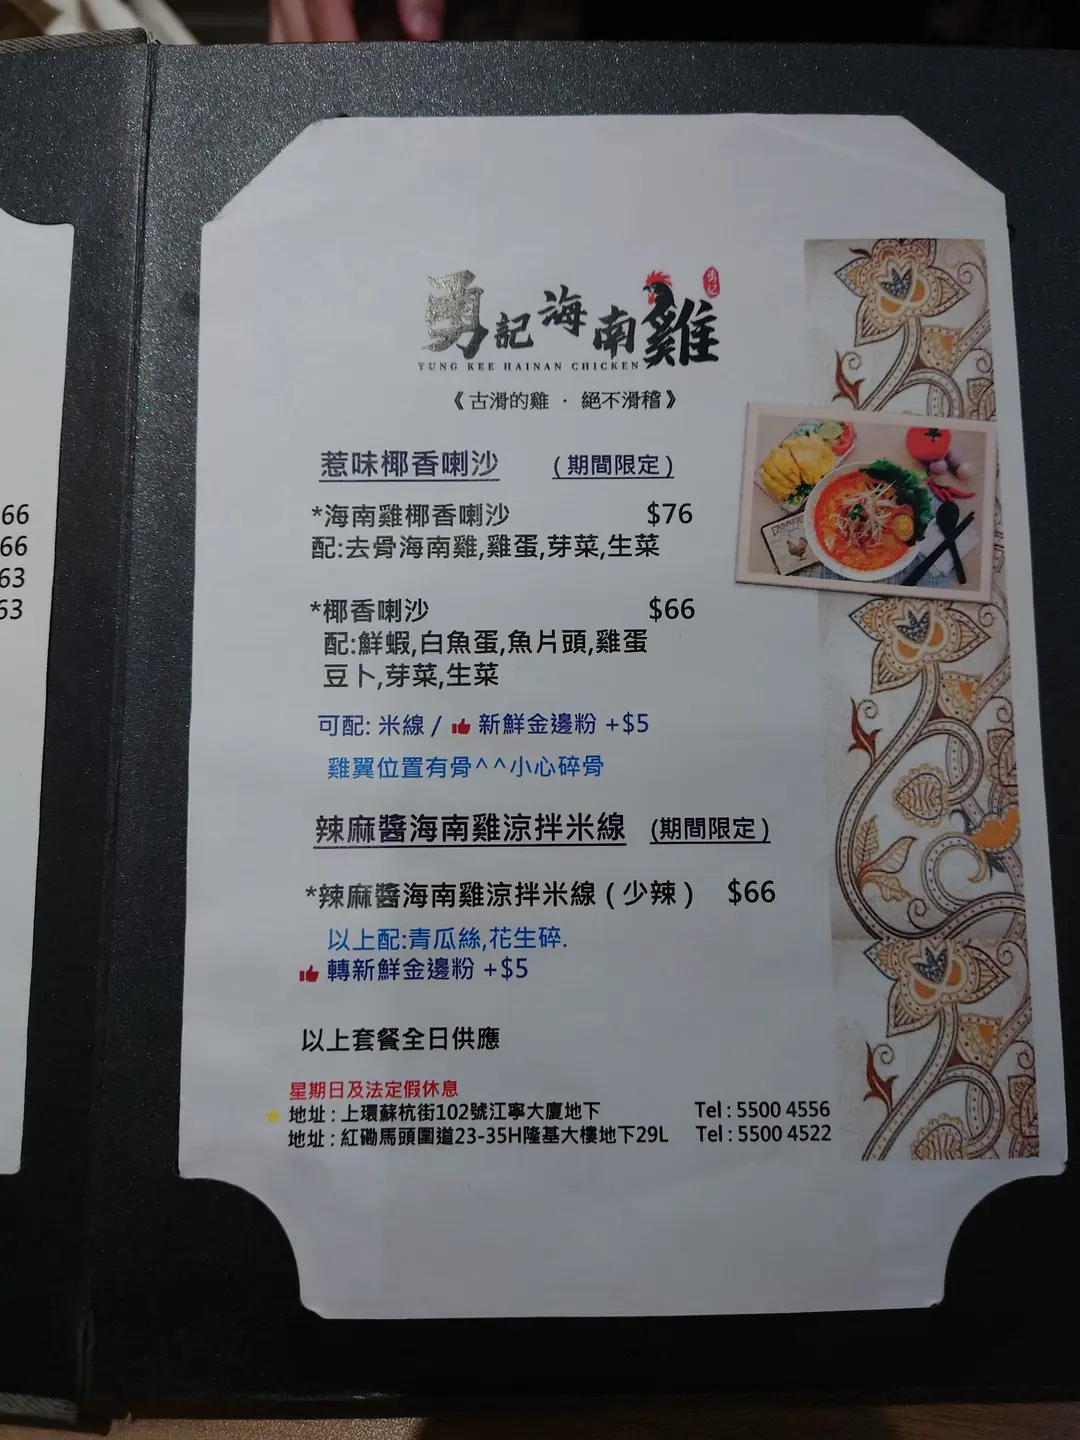 勇記海南雞
勇記
YUNG KEE HAINAN CHICKEN
《古滑的雞 · 絕不滑稽》
惹味椰香喇沙 (期間限定)
*海南雞椰香喇沙 $76
配:去骨海南雞,雞蛋,芽菜,生菜
*椰香喇沙 $66
配:鮮蝦,白魚蛋,魚片頭,雞蛋
豆卜,芽菜,生菜
可配: 米線 / 👍 新鮮金邊粉 +$5
雞翼位置有骨^^小心碎骨
辣麻醬海南雞涼拌米線 (期間限定)
*辣麻醬海南雞涼拌米線 (少辣) $66
以上配:青瓜絲,花生碎.
👍 轉新鮮金邊粉 +$5
以上套餐全日供應
星期日及法定假休息
地址 : 上環蘇杭街102號江寧大廈地下 Tel : 5500 4556
地址 : 紅磡馬頭圍道23-35H隆基大樓地下29L Tel : 5500 4522
66
66
63
63